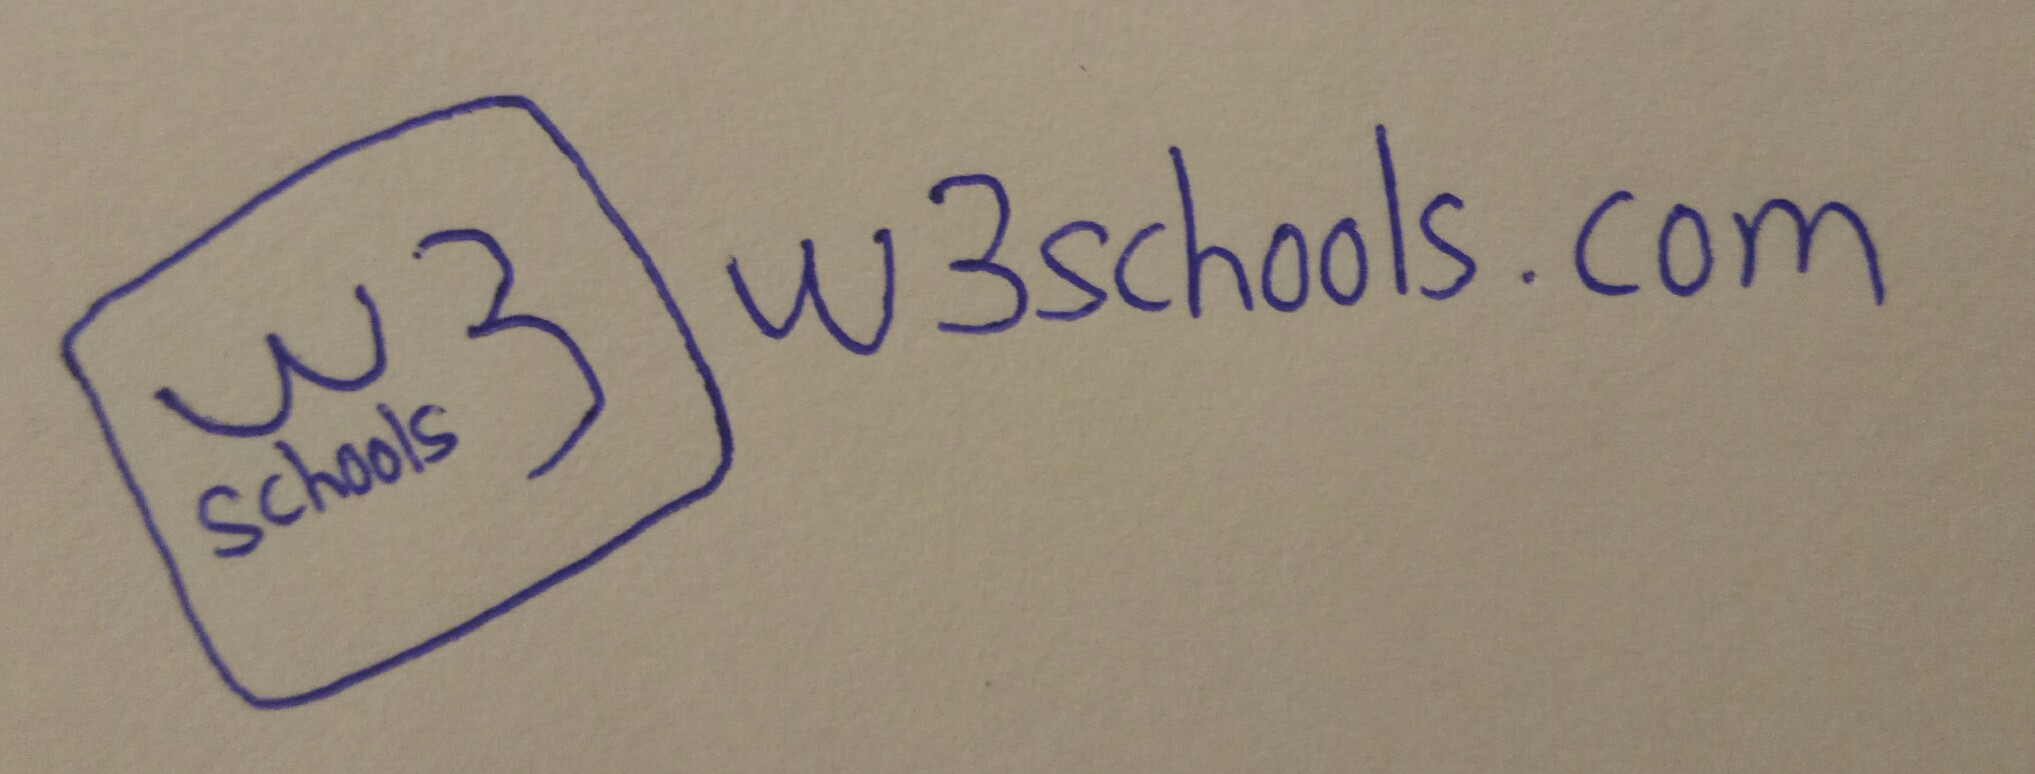 w3
schools
w3schools.com